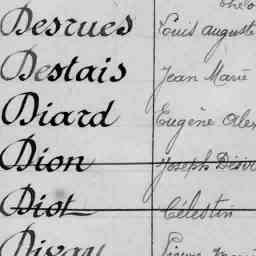 Desrues Louis auguste
Destais Jean Marie
Diard Eugène
Dion Joseph Désir
Diot Célestin